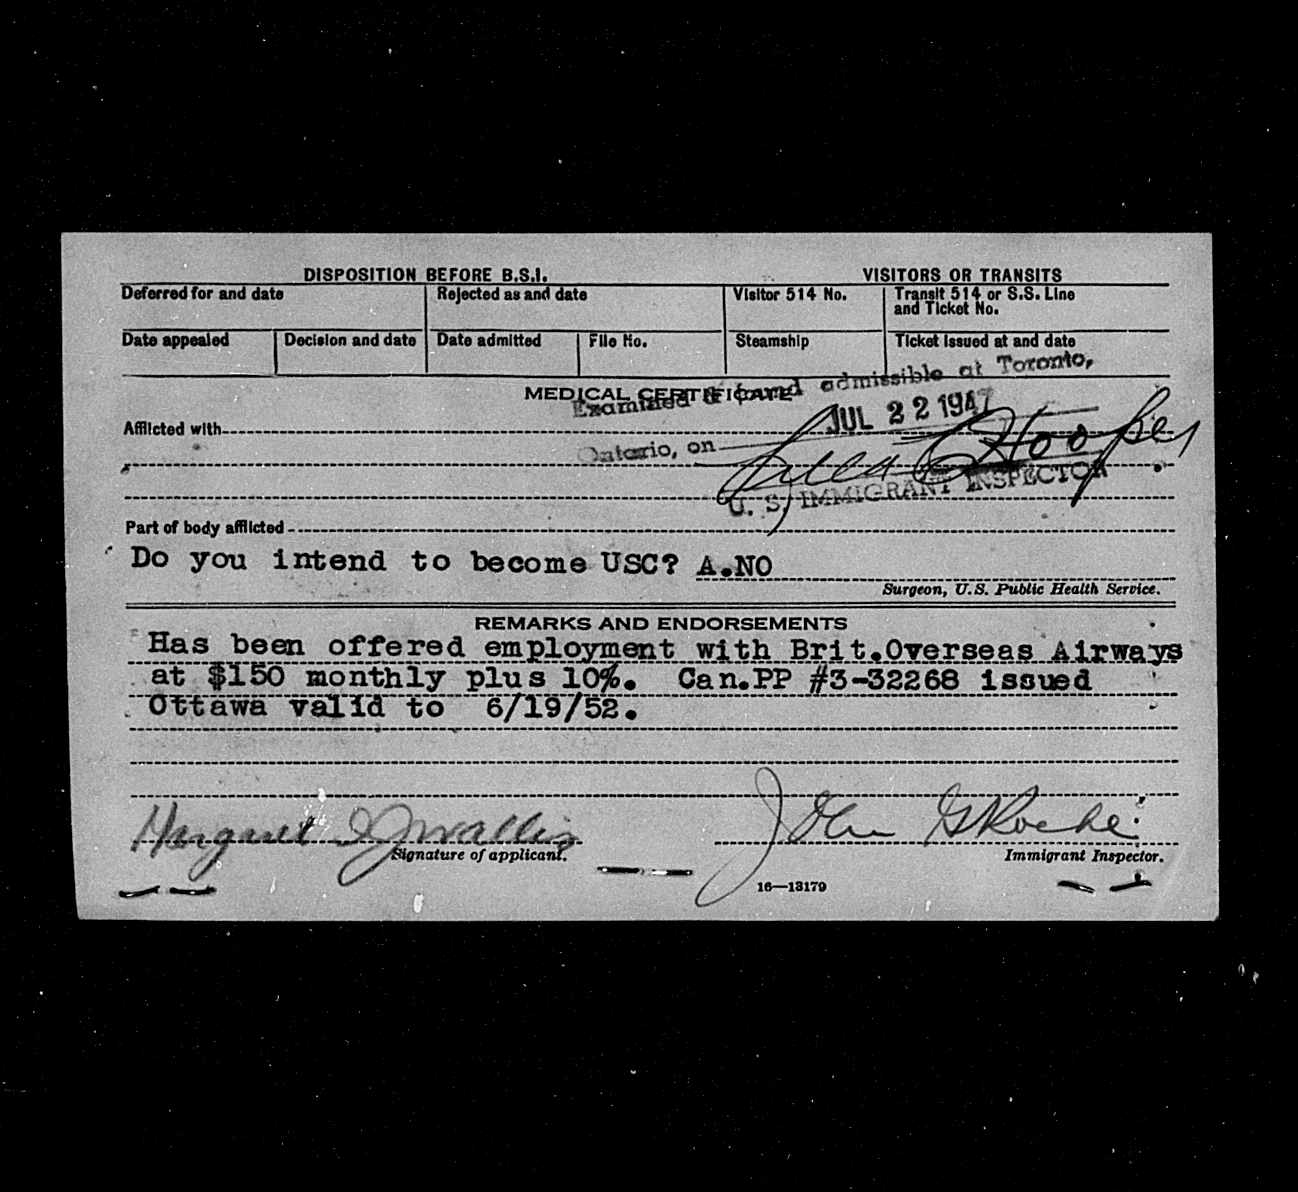 DISPOSITION BEFORE B.S.I.
VISITORS OR TRANSITS
Deferred for and date
Rejected as and date
Visitor 514 No.
Transit 514 or S.S. Line
and Ticket No.
Date appealed
Decision and date
Date admitted
File No.
Steamship
Ticket issued at and date
MEDICAL CERTIFICATE
Examined & found admissible at Toronto,
JUL 22 1947
Afflicted with
Ontario, on
Hooper
U. S. IMMIGRANT INSPECTOR
Part of body afflicted
Do you intend to become USC? A.NO
Surgeon, U.S. Public Health Service.
REMARKS AND ENDORSEMENTS
Has been offered employment with Brit.Overseas Airways
at $150 monthly plus 10%. Can.PP #3-32268 issued
Ottawa valid to 6/19/52.
Margaret I J Wallis
John G Roche
Signature of applicant.
Immigrant Inspector.
16—13179